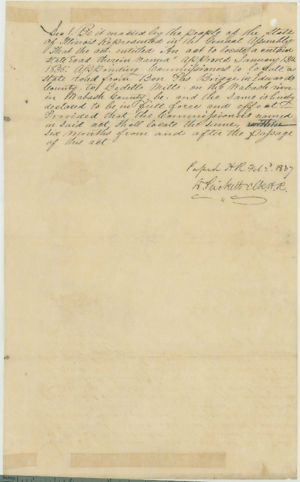 Sec 1 Be it enacted by the people of the State
of Illinois Represented in the General Assembly
That the act entitled An act to locate a certain
State road therein named" Approved January
1835. Appointing Commissioners to locate a
State road from Bon Pas Bridge in Edwards
County to Beddle's Mills on the Wabash river
in Wabash County be and the same is hereby
declared to be in full force and effect
Provided that the Commissioners named
in said act shall locate the same within
six months from and after the passage
of this act
Passed H.R. Feb 1837
D Prickett Clk H.R.